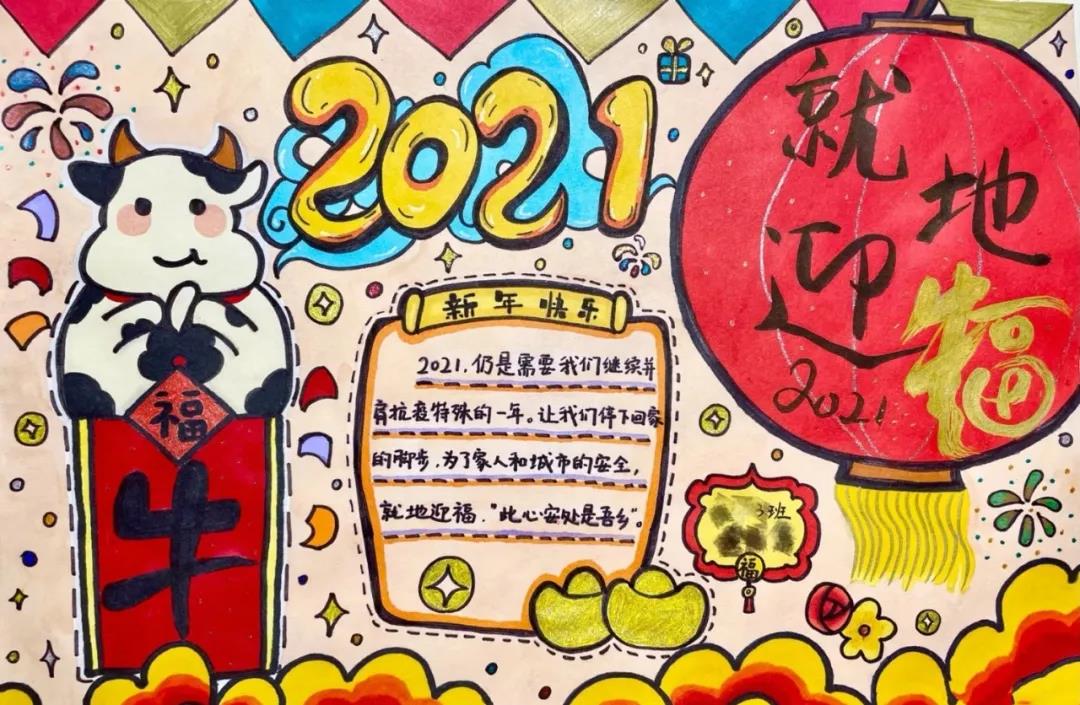 2021
新年快乐
2021.仍是需要我们继续并
肩抗疫特殊的一年。让我们停下回家
的脚步,为了家人和城市的安全,
就地迎福."此心安处是吾乡"。
福
牛
就
地
迎
福
2021
3班
福